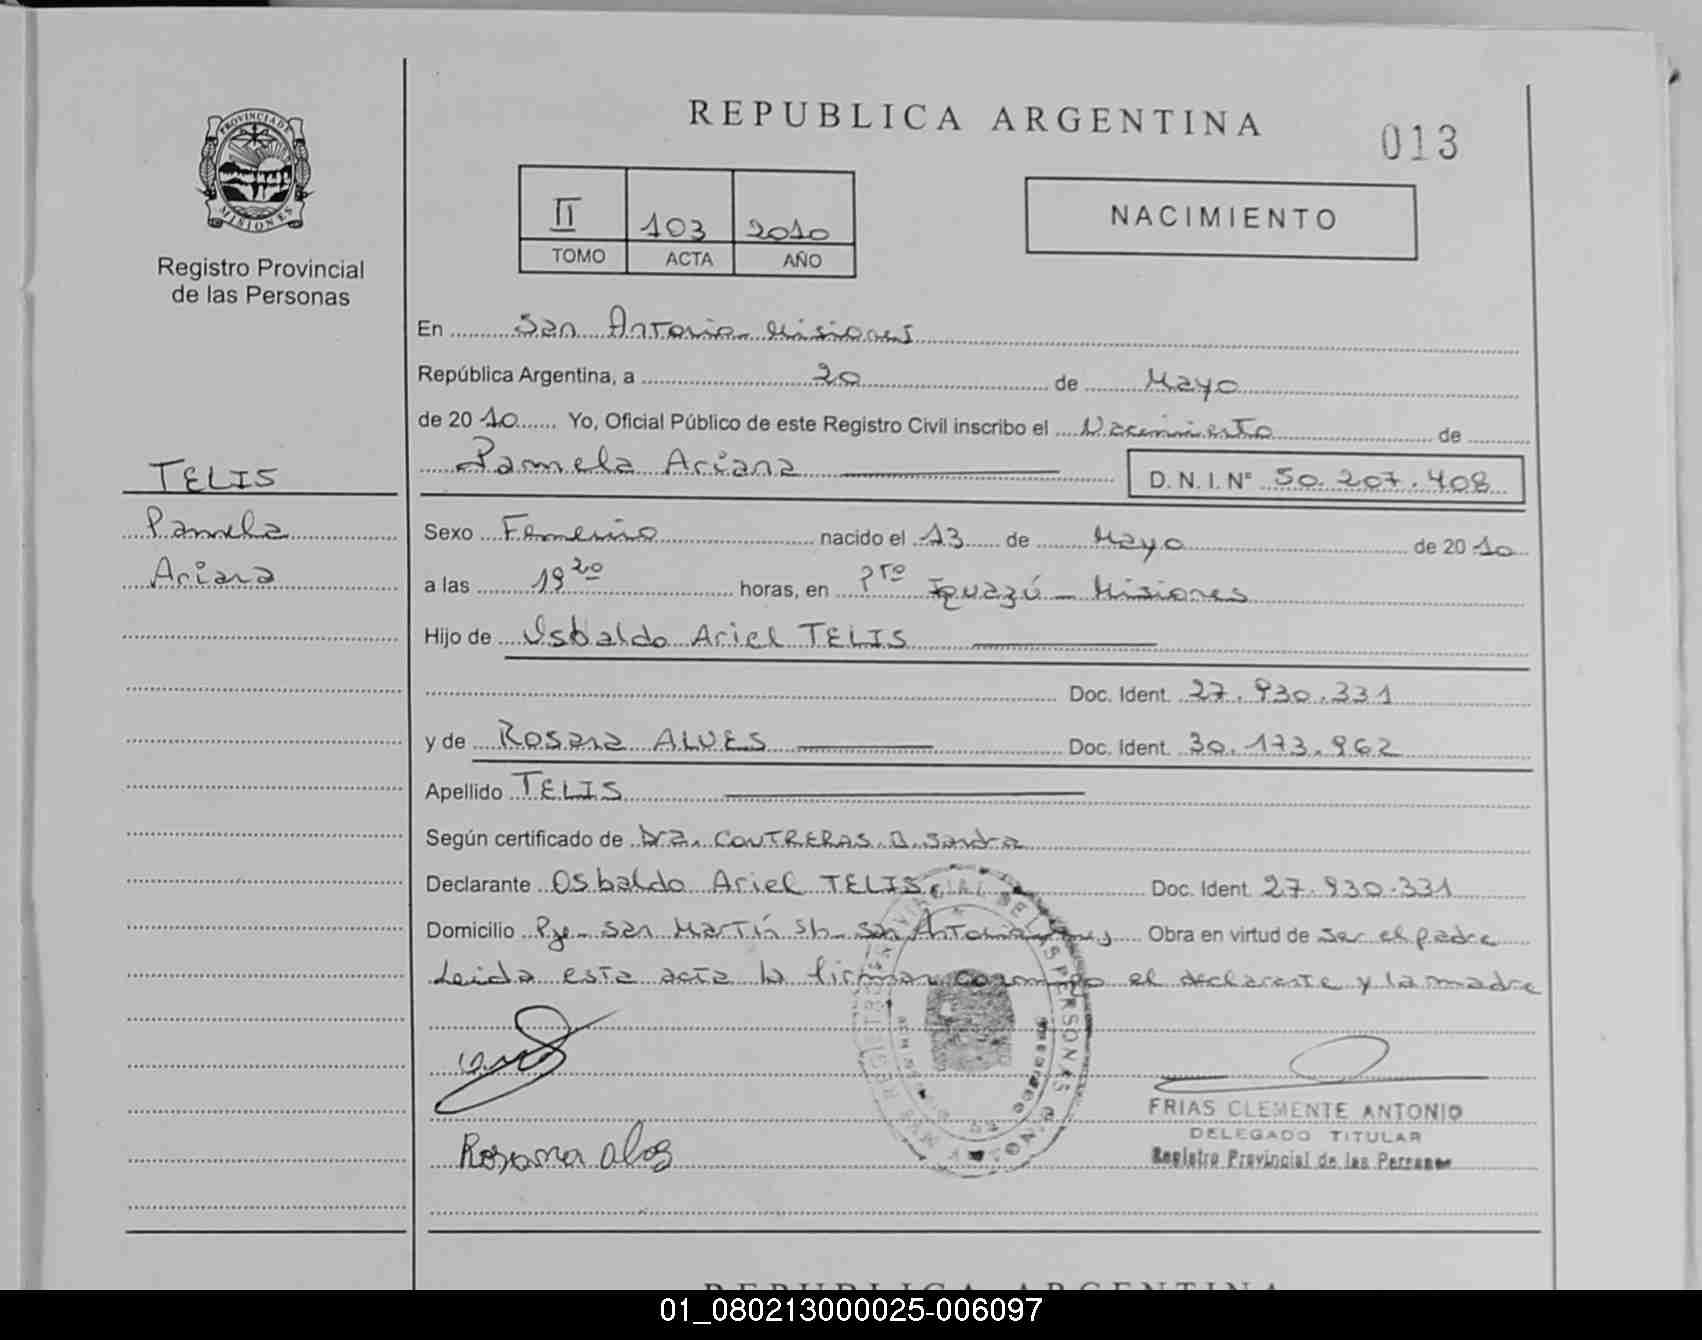 REPUBLICA ARGENTINA
013
PROVINCIA DE MISIONES
Registro Provincial
de las Personas
II 103 2010
TOMO ACTA AÑO
NACIMIENTO
En San Antonio - Misiones
República Argentina, a 20 de Mayo
de 2010 Yo, Oficial Público de este Registro Civil inscribo el Nacimiento de
Pamela Ariana D.N.I.N° 50.207.408
TELIS
Pamela
Ariana
Sexo Femenino nacido el 13 de Mayo de 2010
a las 19 20 horas, en Pto Iguazú - Misiones
Hijo de Osbaldo Ariel TELIS
Doc. Ident. 27.930.331
y de Rosana ALVES Doc. Ident. 30.173.962
Apellido TELIS
Según certificado de Dra. CONTRERAS B. Sandra
Declarante Osbaldo Ariel TELIS Doc. Ident. 27.930.331
Domicilio Pje. San Martín S/n San Antonio Mnes Obra en virtud de ser el padre
Leida esta acta la firman conmigo el declarante y la madre
FRIAS CLEMENTE ANTONIO
DELEGADO TITULAR
Registro Provincial de las Personas
Rosana
REPUBLICA ARGENTINA
01_080213000025-006097